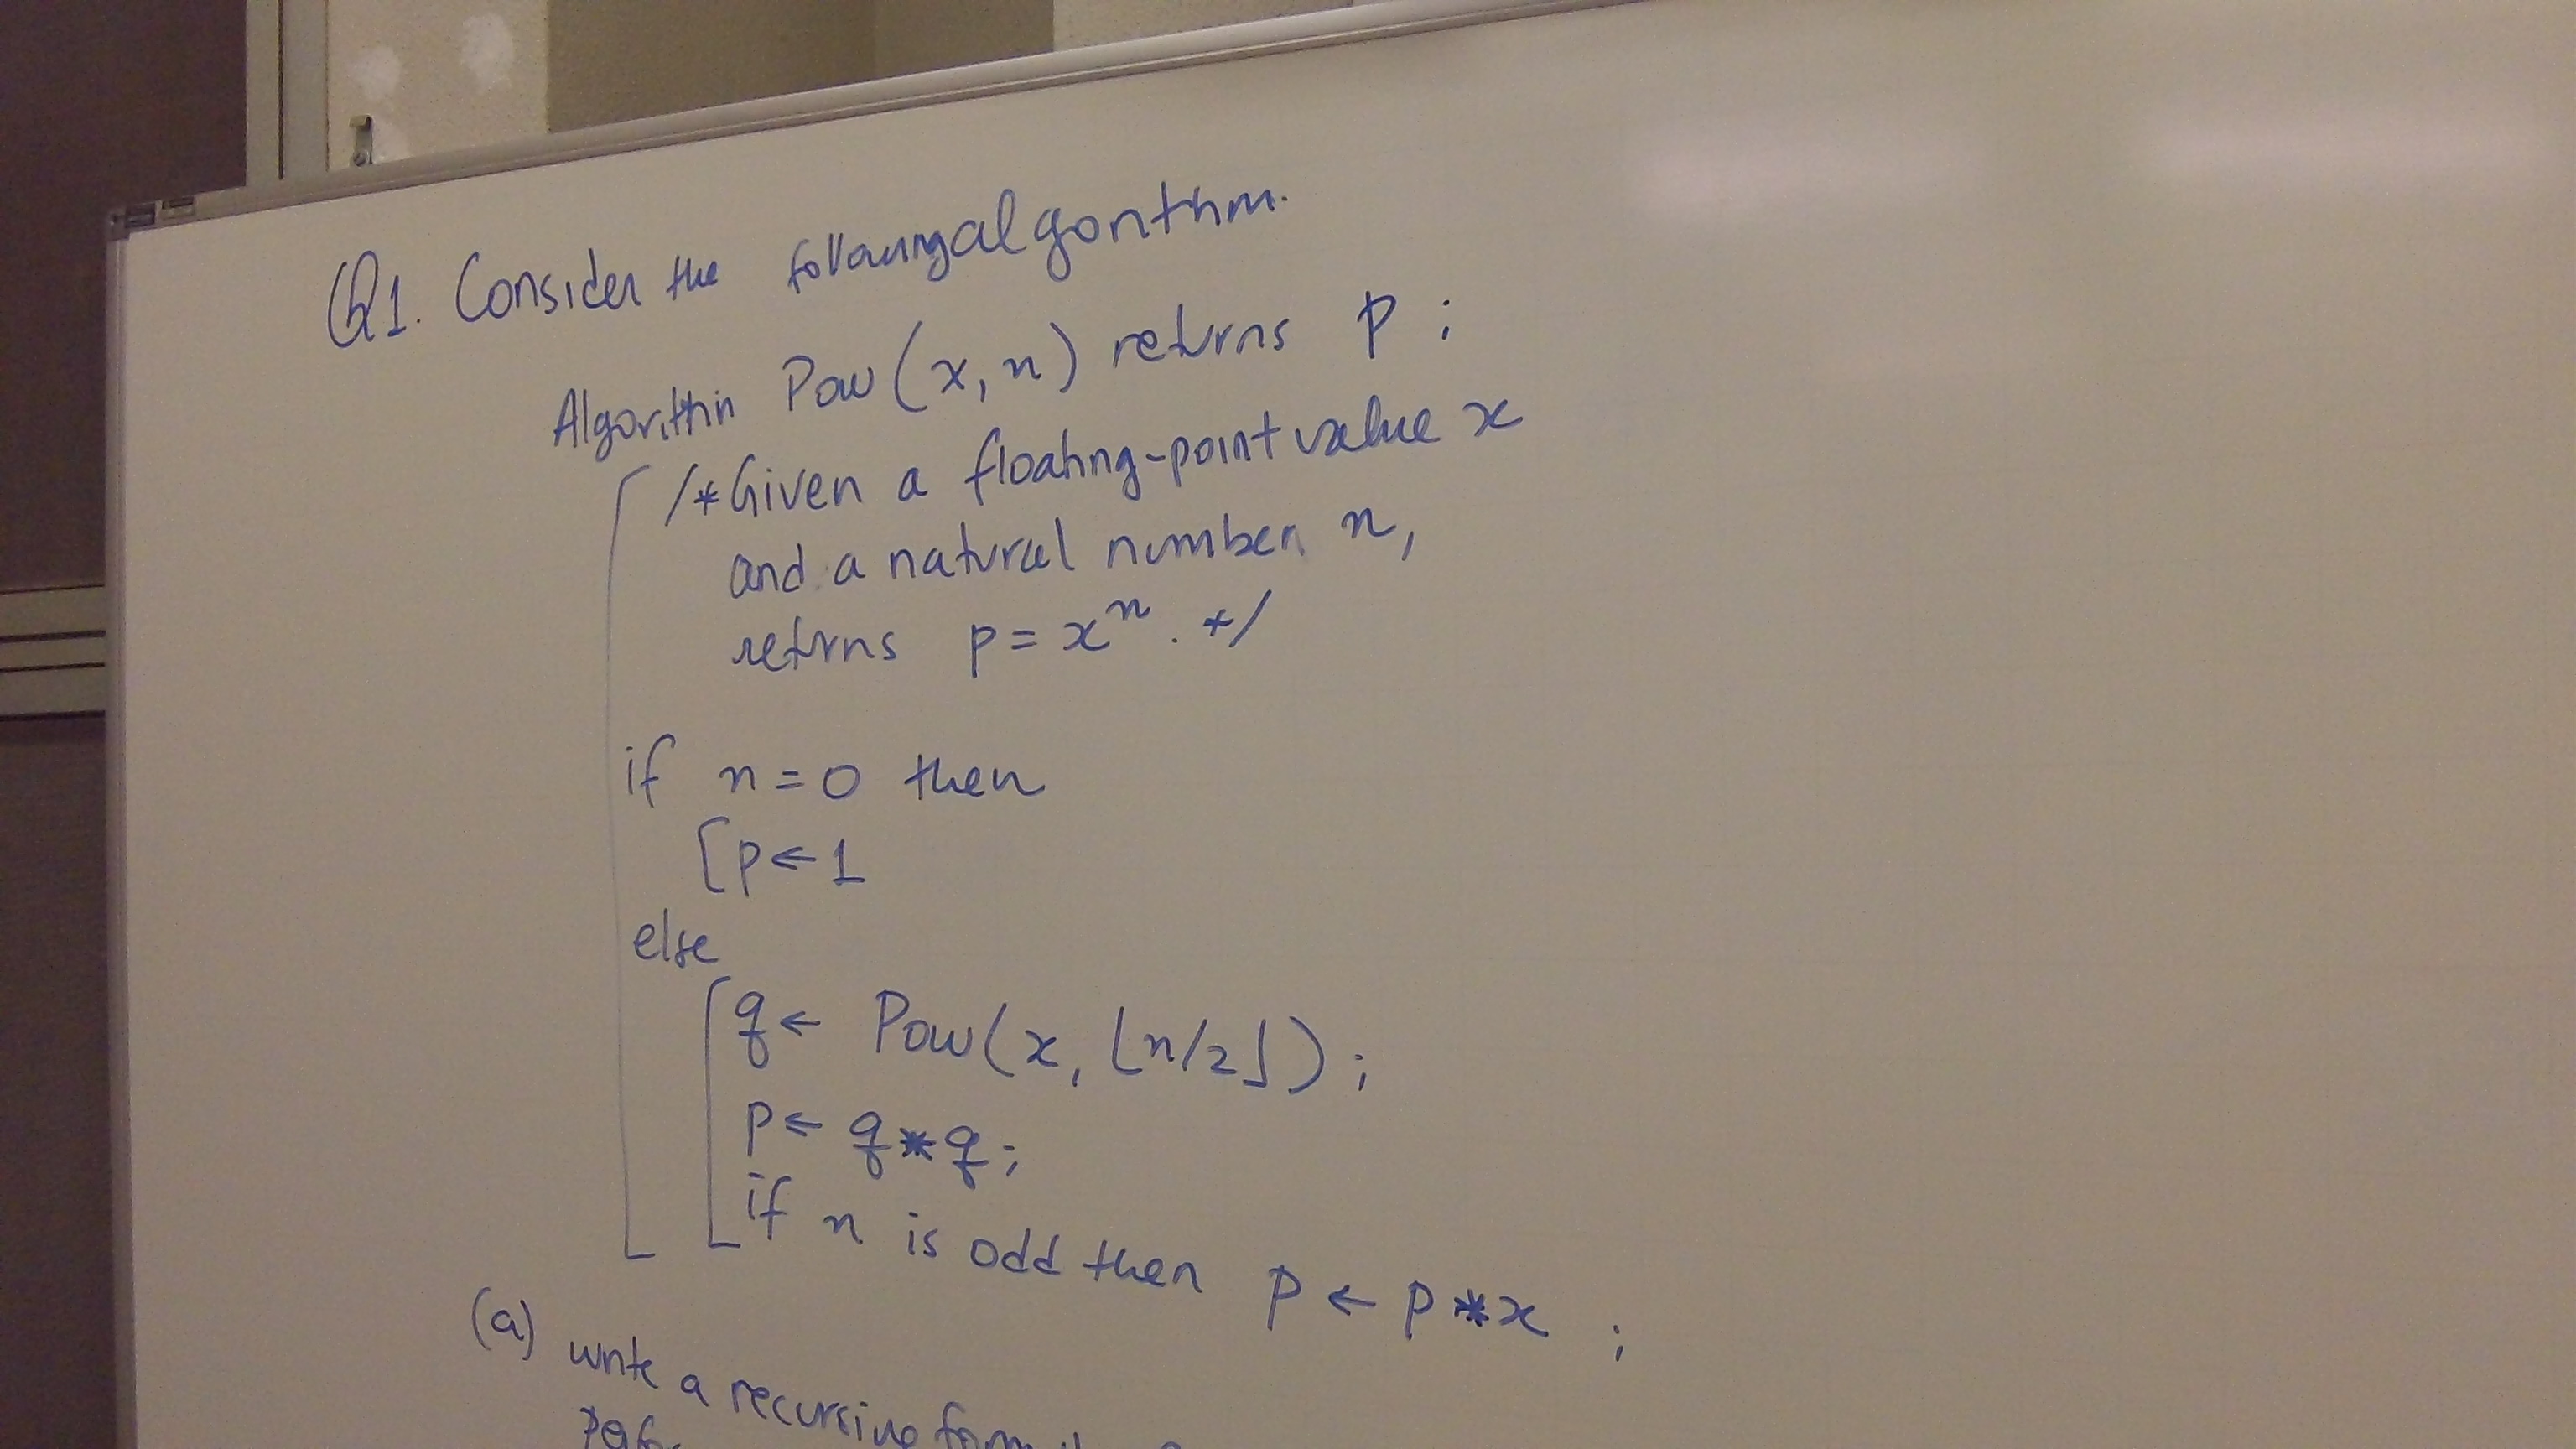 Q1. Consider the following algorithm.
Algorithm Pow(x, n) returns p :
/* Given a floating-point value x
and a natural number n,
returns p = xⁿ. */
if n = 0 then
[p ← 1
else
q ← Pow(x, ⌊n/2⌋);
p ← q * q;
if n is odd then p ← p * x ;
(a) write a recursive